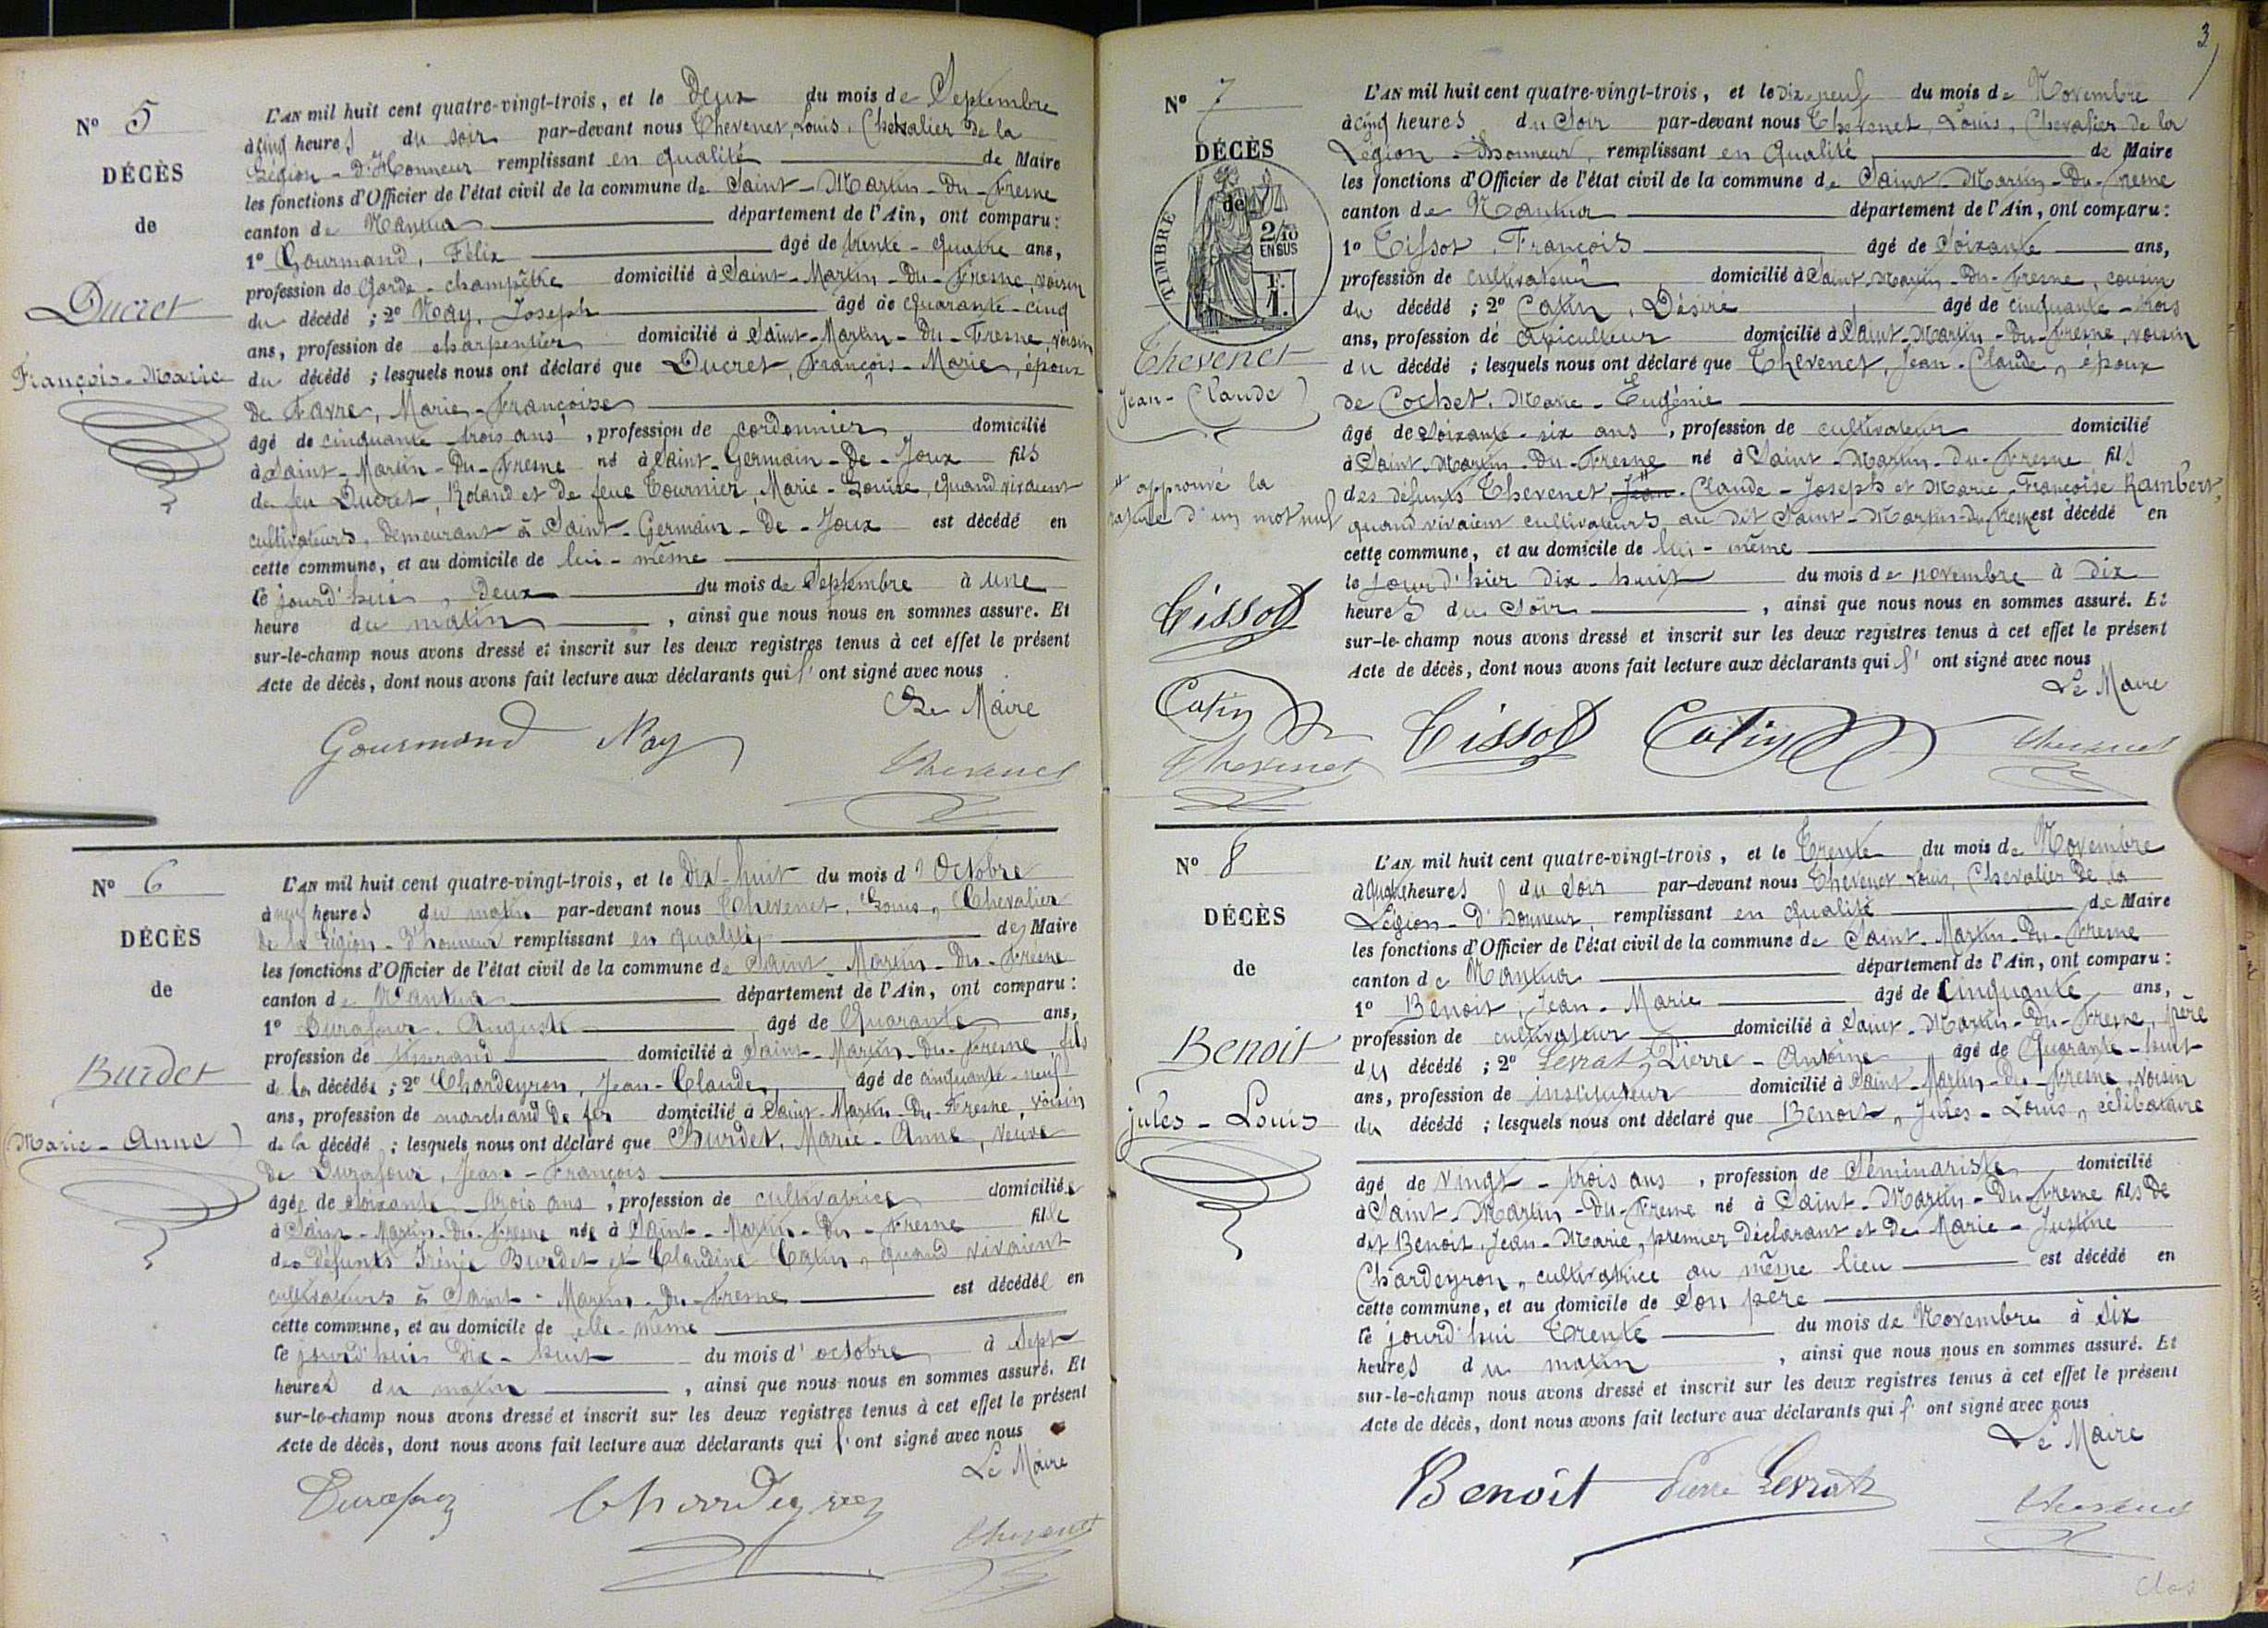 N° 5
DÉCÈS
de
Ducret
François-Marie
L'AN mil huit cent quatre-vingt-trois, et le Deux du mois de Septembre
à cinq heures du soir par-devant nous Thevenet, Louis, Chevalier de la
Légion-d'Honneur remplissant en qualité de Maire
les fonctions d'Officier de l'état civil de la commune de Saint-Martin-Du-Fresne
canton de Nantua département de l'Ain, ont comparu:
1° Gourmand, Félix âgé de trente-quatre ans,
profession de Garde-champêtre domicilié à Saint-Martin-Du-Fresne, voisin
du décédé ; 2° Nay, Joseph âgé de quarante-cinq
ans, profession de charpentier domicilié à Saint-Martin-Du-Fresne, voisin
du décédé ; lesquels nous ont déclaré que Ducret, François-Marie, époux
de Favre, Marie-Françoise
âgé de cinquante-trois ans, profession de cordonnier domicilié
à Saint-Martin-Du-Fresne né à Saint-Germain-De-Joux fils
de feu Ducret, Roland et de feue Tournier, Marie-Louise, quand vivaient
cultivateurs, demeurant à Saint-Germain-De-Joux est décédé en
cette commune, et au domicile de lui-même
le jourd'hui, Deux du mois de Septembre à une
heure du matin, ainsi que nous nous en sommes assuré. Et
sur-le-champ nous avons dressé et inscrit sur les deux registres tenus à cet effet le présent
Acte de décès, dont nous avons fait lecture aux déclarants qui l'ont signé avec nous
Le Maire
Gourmand Nay
Thevenet
N° 6
DÉCÈS
de
Burdet
(Marie-Anne)
L'AN mil huit cent quatre-vingt-trois, et le Dix-huit du mois d'Octobre
à neuf heures du matin par-devant nous Thevenet, Louis, Chevalier
de la Légion-d'honneur remplissant en qualité de Maire
les fonctions d'Officier de l'état civil de la commune de Saint-Martin-Du-Fresne
canton de Nantua département de l'Ain, ont comparu:
1° Durafour, Auguste âgé de Quarante ans,
profession de domicilié à Saint-Martin-Du-Fresne fils
de la décédée ; 2° Chardeyron, Jean-Claude, âgé de cinquante-neuf
ans, profession de marchand de fer domicilié à Saint-Martin-Du-Fresne, voisin
de la décédé ; lesquels nous ont déclaré que Burdet, Marie-Anne, veuve
de Durafour, Jean-François
âgée de soixante-trois ans, profession de cultivatrice domiciliée
à Saint-Martin-Du-Fresne née à Saint-Martin-Du-Fresne fille
des défunts Irénée Burdet et Claudine Catin, quand vivaient
cultivateurs à Saint-Martin-Du-Fresne est décédée en
cette commune, et au domicile de elle-même
le jourd'hui Dix-huit du mois d'octobre à sept
heures du matin, ainsi que nous nous en sommes assuré. Et
sur-le-champ nous avons dressé et inscrit sur les deux registres tenus à cet effet le présent
Acte de décès, dont nous avons fait lecture aux déclarants qui l'ont signé avec nous
Le Maire
Durafour Chardeyron
Thevenet
3
N° 7
DÉCÈS
de
TIMBRE
2/10
EN SUS
1F.
Thevenet
Jean-Claude)
approuvé la
rature d'un mot nul
Tissot
Catin
Thevenet
L'AN mil huit cent quatre-vingt-trois, et le dix-neuf du mois de Novembre
à cinq heures du Soir par-devant nous Thevenet, Louis, Chevalier de la
Légion-Dhonneur, remplissant en qualité de Maire
les fonctions d'Officier de l'état civil de la commune de Saint-Martin-Du-Fresne
canton de Nantua département de l'Ain, ont comparu:
1° Tissot, François âgé de Soixante ans,
profession de cultivateur domicilié à Saint-Martin-Du-Fresne, cousin
du décédé ; 2° Catin, Désire âgé de cinquante-trois
ans, profession de apiculteur domicilié à Saint-Martin-Du-Fresne, voisin
du décédé ; lesquels nous ont déclaré que Thevenet, Jean-Claude, époux
de Cochet, Marie-Eugénie
âgé de soixante-six ans, profession de cultivateur domicilié
à Saint-Martin-Du-Fresne né à Saint-Martin-Du-Fresne fils
des défunts Thevenet, Jean-Claude-Joseph et Marie-Françoise Rambert,
quand vivaient cultivateurs au dit Saint-Martin-Du-Fresne est décédé en
cette commune, et au domicile de lui-même
le jourd'hier dix-huit du mois de novembre à Dix
heures du Soir, ainsi que nous nous en sommes assuré. Et
sur-le-champ nous avons dressé et inscrit sur les deux registres tenus à cet effet le présent
Acte de décès, dont nous avons fait lecture aux déclarants qui l'ont signé avec nous
Le Maire
Tissot Catin Thevenet
N° 8
DÉCÈS
de
Benoit
jules-Louis
L'AN mil huit cent quatre-vingt-trois, et le Trente du mois de Novembre
à quatre heures du Soir par-devant nous Thevenet Louis, Chevalier de la
Légion-d'honneur, remplissant en qualité de Maire
les fonctions d'Officier de l'état civil de la commune de Saint-Martin-Du-Fresne
canton de Nantua département de l'Ain, ont comparu:
1° Benoit, Jean-Marie âgé de Cinquante ans,
profession de cultivateur domicilié à Saint-Martin-Du-Fresne, père
du décédé ; 2° Levrat, Pierre-Antoine âgé de Quarante-huit
ans, profession de instituteur domicilié à Saint-Martin-Du-Fresne, voisin
du décédé ; lesquels nous ont déclaré que Benoit, Jules-Louis, célibataire
âgé de vingt-trois ans, profession de Séminariste domicilié
à Saint-Martin-Du-Fresne né à Saint-Martin-Du-Fresne fils de
dit Benoit, Jean-Marie, premier déclarant et de Marie-Justine
Chardeyron, cultivatrice au même lieu est décédé en
cette commune, et au domicile de Son père
le jourd'hui Trente du mois de Novembre à six
heures du matin, ainsi que nous nous en sommes assuré. Et
sur-le-champ nous avons dressé et inscrit sur les deux registres tenus à cet effet le présent
Acte de décès, dont nous avons fait lecture aux déclarants qui l'ont signé avec nous
Le Maire
Benoît Pierre Levrat
Thevenet
Clos